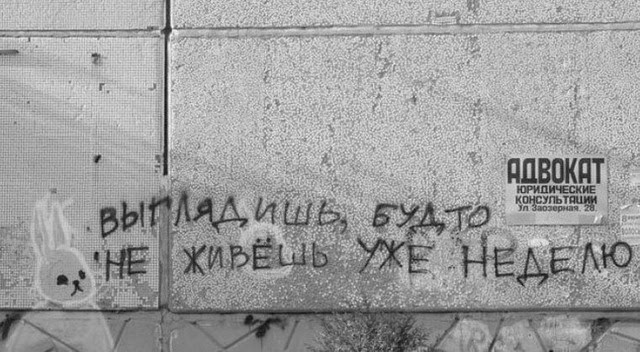 АДВОКАТ
ЮРИДИЧЕСКИЕ
КОНСУЛЬТАЦИИ
Ул Заозерная, 28.
ВЫГЛЯДИШЬ, БУДТО
НЕ ЖИВЁШЬ УЖЕ НЕДЕЛЮ